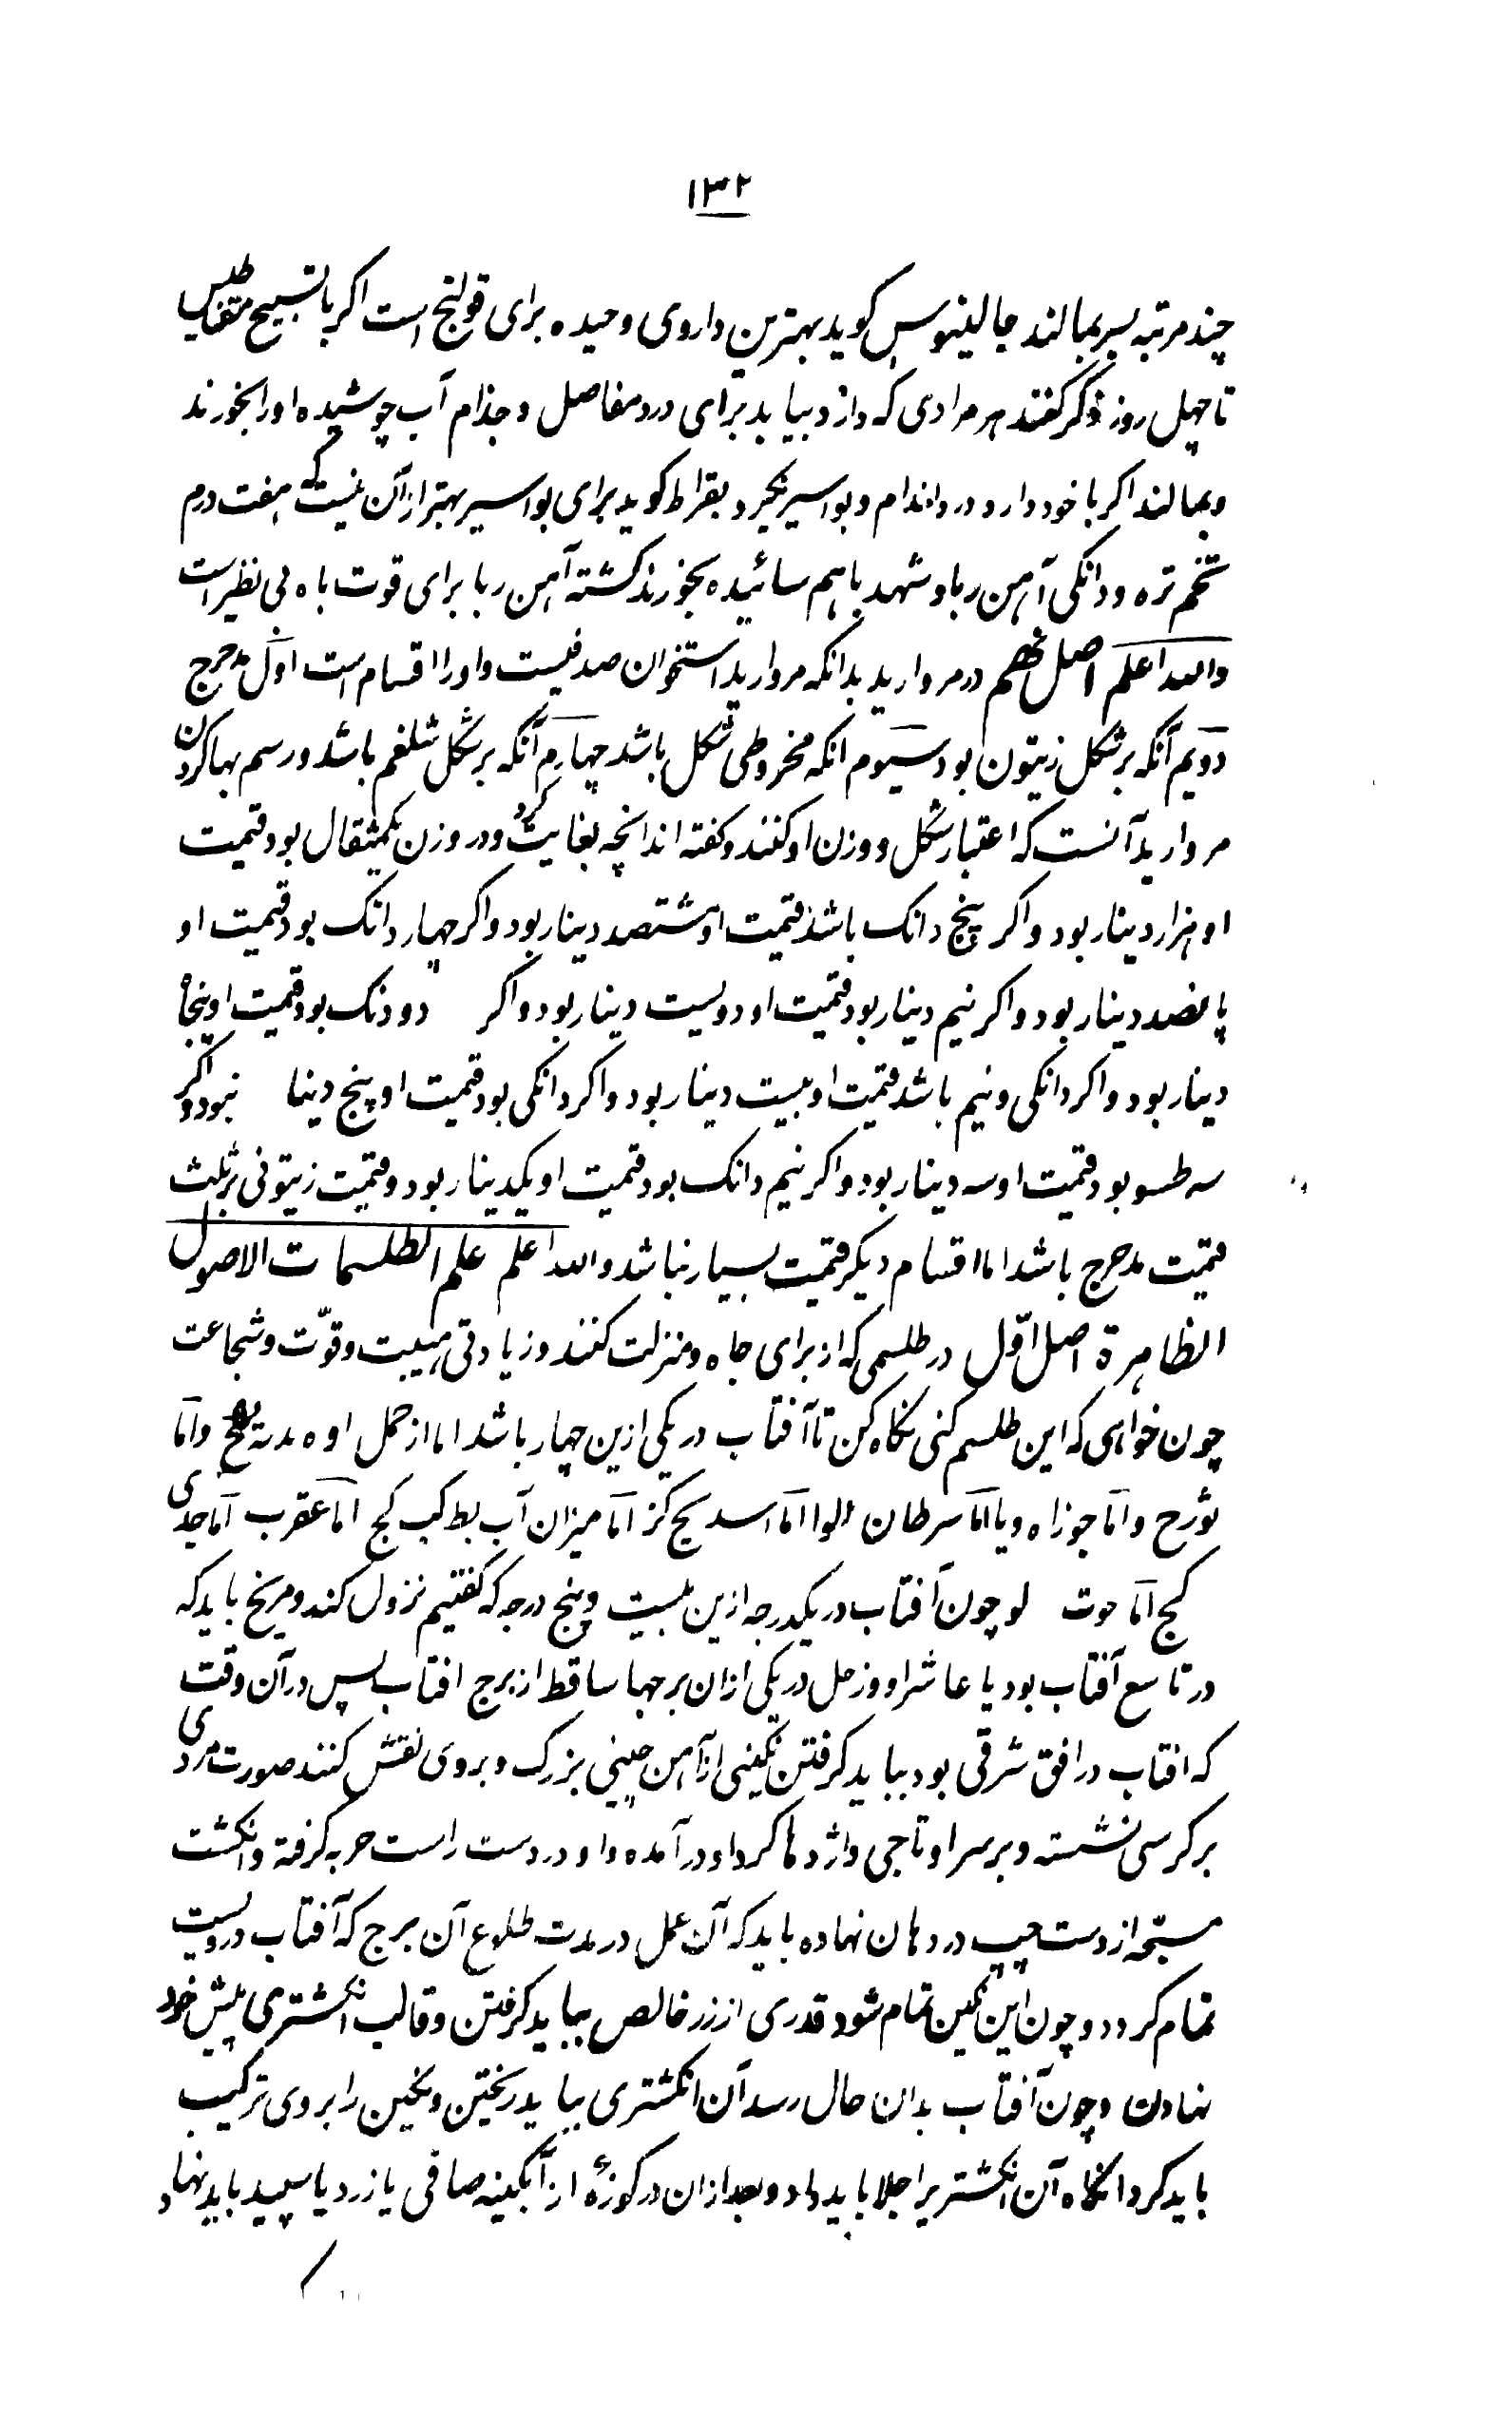 ۱۳۲
چند مرتبه بسر بمالند جالینوس کوید بهترین داروی وحیده برای قولنج است اکر با تسبیح مقناطیس
تا چهل روز ذکر کفتند هر مرادی که دارد بیابد برای درد مفاصل و جذام آب جوشیده او را بخورند
و بمالند اکر با خود دارد درد اندام و بواسیر نکیرد بقراط کوید برای بواسیر بهتر از آن نیست که هفت درم
تخم تره و دانکی آهن ربا و شهد باهم سائیده بخورند کشته آهن ربا برای قوت باه بی نظیر است
والله اعلم اصل نهم در مروارید بدانکه مروارید استخوان صدفیست و او را اقسام است اوّل مدحرج
دویم آنکه بر شکل زیتون بود سیوم انکه مخروطی شکل باشد چهارم آنکه بر شکل شلغم باشد و رسم بها کردن
مروارید آنست که اعتبار شکل و وزن او کنند و کفته اند انچه بغایت کرد و در وزن یکمثقال بود قیمت
او هزار دینار بود و اکر پنج دانک باشد قیمت او هشتصد دینار بود و اکر چهار دانک بود قیمت او
پانصد دینار بود و اکر نیم دینار بود قیمت او دویست دینار بود و اکر دو دنک بود قیمت او پنجا
دینار بود و اکر دانکی و نیم باشد قیمت او بیست دینار بود و اکر دانکی بود قیمت او پنج دینا نبود و اکر
سه طسو بود قیمت او سه دینار بود و اکر نیم دانک بود قیمت او یکدینار بود و قیمت زیتونی بر ثلث
قیمت مدحرج باشد اما اقسام دیکر قیمت بسیار نباشد والله اعلم علم الطلسمات الاصول
الظاهرة اصل اوّل در طلسمی که از برای جاه و منزلت کنند و زیادتی هیبت و قوّت و شجاعت
چون خواهی که این طلسم کنی نکاه کن تا آفتاب در یکی ازین چهار باشد اما از حمل او ه مدته وامّا
ثورح وامّا جوزاه ویا امّا سرطان الوا امّا اسد یح کز امّا میزان آب بط کب کج امّا عقرب امّا جدی
کج امّا حوت لو چون آفتاب در یکدرجه ازین بیست و پنج درجه که کفتیم نزول کند و مریخ باید که
در تاسع آفتاب بود یا عاشر او و زحل در یکی ازان برجها ساقط از برج افتاب پس در آن وقت
که افتاب در افق شرقی بود بباید کرفتن نکینی از آهن چینی بزرک و بروی نقش کنند صورت مردی
بر کرسی نشسته و بر سر او تاجی و اژدها کرد او در آمده و او در دست راست حربه کرفته و انکشت
مسبّحه از دست چپ در دهان نهاده باید که آن عمل در مدت طلوع آن برج که آفتاب درویست
تمام کردد و چون این نکین تمام شود قدری از زر خالص بباید کرفتن و قالب انکشتری پیش خود
نهادن و چون آفتاب بدان حال رسد آن انکشتری بباید ریختن و نکین را بروی ترکیب
باید کرد انکاه آن انکشتری را جلا باید داد و بعد ازان در کوزهٔ از آبکینه صافی یا زرد یا سپید باید نهاد